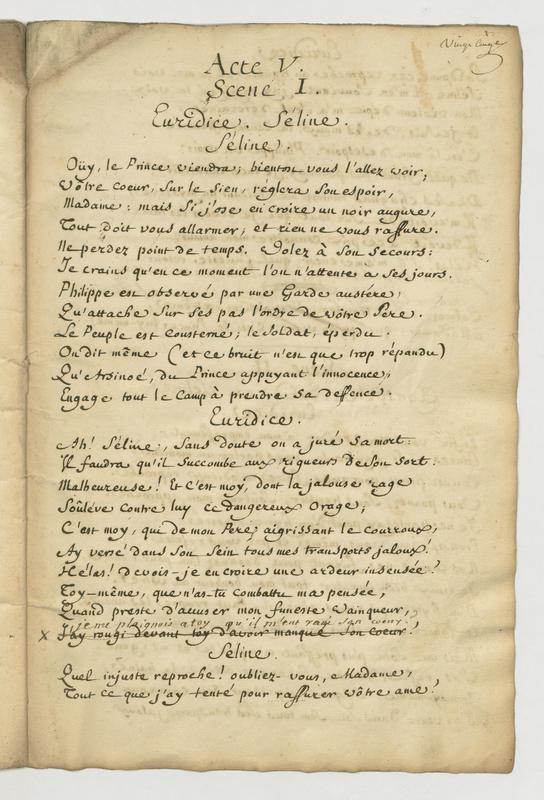 Vingt cinq
Acte V.
Scene I.
Euridice. Séline.
Séline.
Oüy, le Prince viendra; bientost vous l'allez voir;
Vôtre coeur, sur le sien, réglera son espoir,
Madame: mais si j'ose en croire un noir augure,
Tout doit vous allarmer, et rien ne vous rassure.
Ne perdez point de temps. Volez à son secours:
Je crains qu'en ce moment l'on n'attente a ses jours.
Philippe est observé par une Garde austére,
Qu'attache sur ses pas l'ordre de vôtre Pere.
Le Peuple est consterné; le soldat, éperdu.
On dit même (et ce bruit n'est que trop répandu)
Qu'Arsinoé, du Prince appuyant l'innocence,
Engage tout le Camp à prendre sa deffence.
Euridice.
Ah! Séline, sans doute on a juré sa mort:
Il faudra qu'il succombe aux rigueurs de son sort.
Malheureuse! Et c'est moy, dont la jalouse rage
Soûléve contre luy ce dangereux orage;
C'est moy, qui de mon Pere, aigrissant le courroux,
Ay versé dans son sein tous mes transports jaloux!
Hélas! devois-je en croire une ardeur insensée?
Toy-même, que n'as-tu combattu ma pensée,
Quand preste d'accuser mon funeste vainqueur,
je me plaignois a toy qu'il m'eut ravi son coeur?
x J'ay rougi devant toy d'avoir manqué son coeur?
Séline.
Quel injuste reproche! oubliez-vous, Madame,
Tout ce que j'ay tenté pour rassurer vôtre ame?